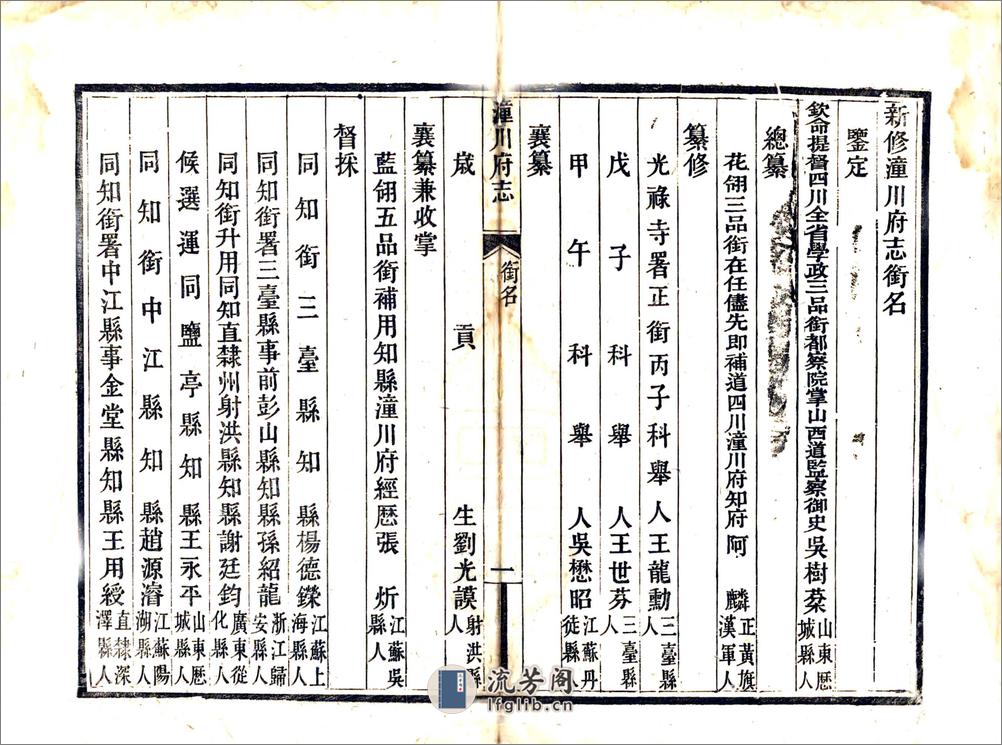 新修潼川府志銜名
鑒定
欽命提督四川全省學政三品銜都察院掌山西道監察御史吳樹棻山東歷城縣人
總纂
花翎三品銜在任儘先即補道四川潼川府知府阿麟正黃旗漢軍人
纂修
光祿寺署正銜丙子科舉人王龍勳三臺縣人
戊子科舉人王世芬三臺縣人
甲午科舉人吳懋昭江蘇丹徒縣人
襄纂
歲貢生劉光謨射洪縣人
潼川府志
銜名
一
襄纂兼收掌
藍翎五品銜補用知縣潼川府經歷張炘江蘇吳縣人
督採
同知銜三臺縣知縣楊德鑅江蘇上海縣人
同知銜署三臺縣事前彭山縣知縣孫紹龍浙江歸安縣人
同知銜升用同知直隸州射洪縣知縣謝廷鈞廣東從化縣人
候選運同鹽亭縣知縣王永平山東歷城縣人
同知銜中江縣知縣趙源濬江蘇陽湖縣人
同知銜署中江縣事金堂縣知縣王用綬直隸深澤縣人
流芳阁
lfglib.cn